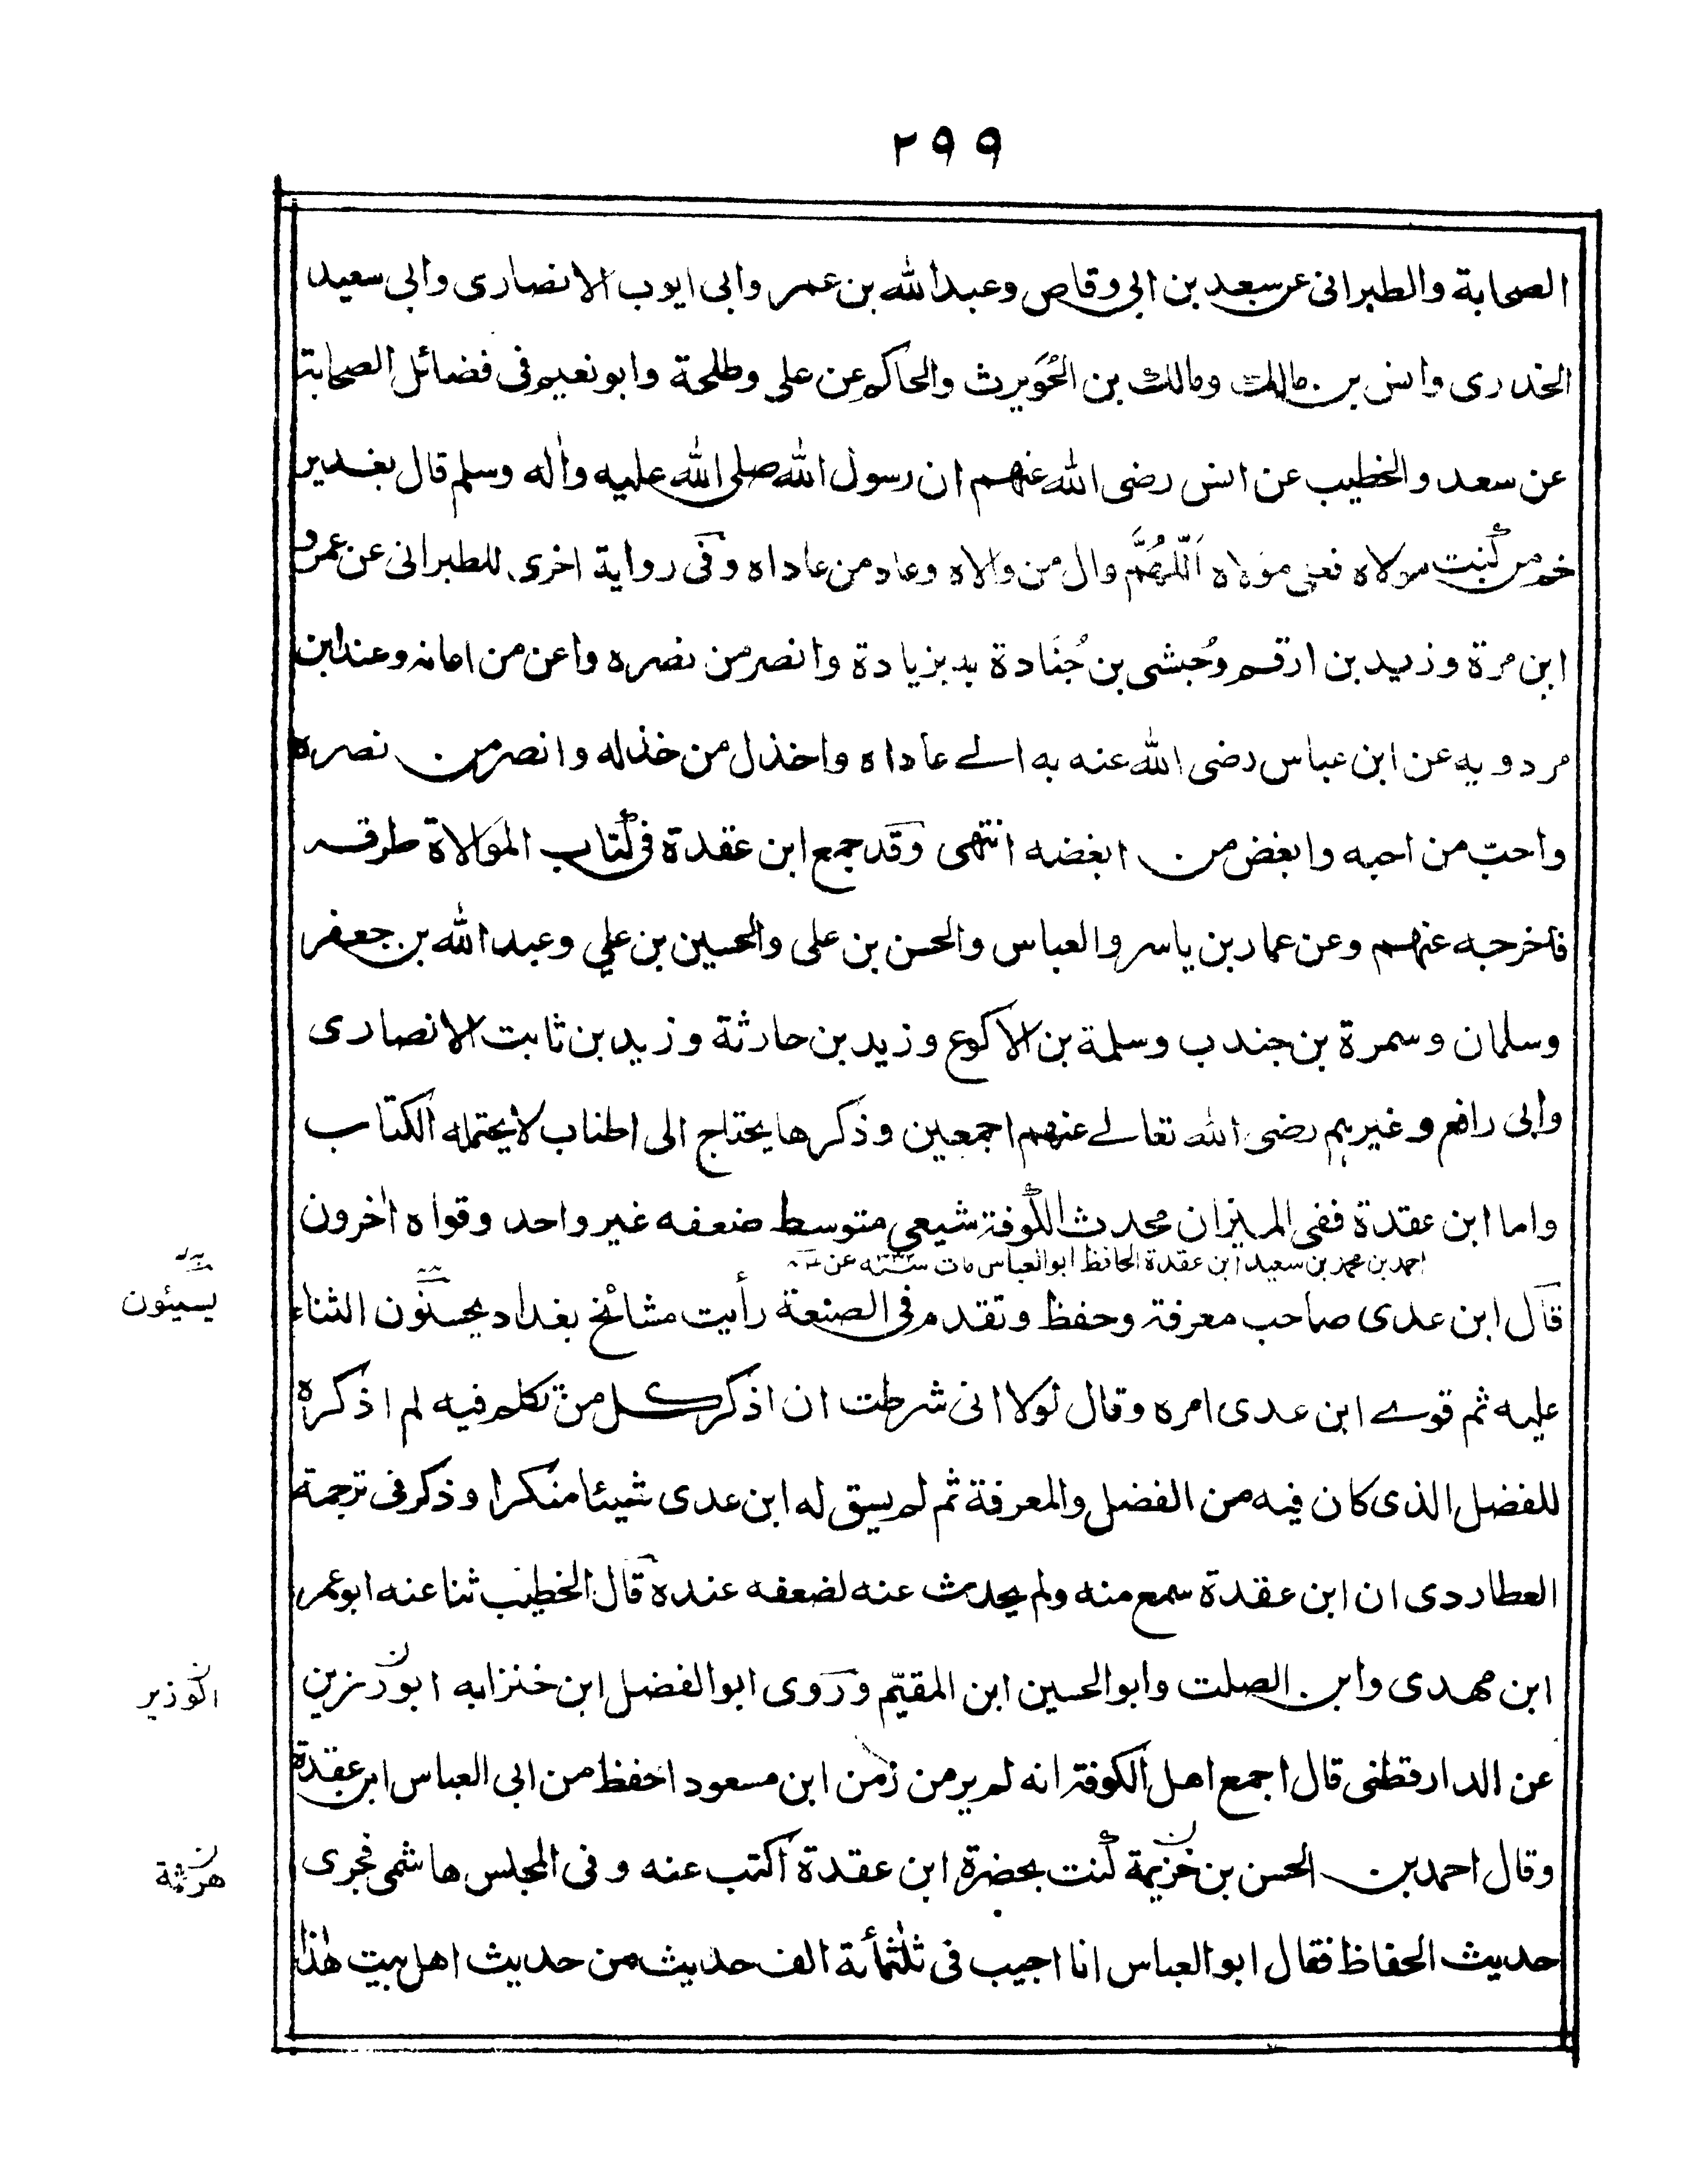 ٢٩٩
الصحابة والطبرانى عن سعد بن ابى وقاص وعبد الله بن عمر وابى ايوب الانصارى وابى سعيد
الخدرى وانس بن مالك ومالك بن الحُوَيرث والحاكم عن على وطلحة وابو نعيم فى فضائل الصحابة
عن سعد والخطيب عن انس رضى الله عنهم ان رسول الله صلى الله عليه واٰله وسلم قال بغدير
خم من كنت مولاه فعلى مولاه اَللّٰهُمَّ وال من والاه وعاد من عاداه وفى رواية اخرى للطبرانى عن عمرو
ابن مرة وزيد بن ارقم وحُبشى بن جُنَادة به بزيادة وانصر من نصره واعن من اعانه وعند ابن
مردويه عن ابن عباس رضى الله عنه به الے عاداه واخذل من خذله وانصر من نصره
واحبّ من احبه وابغض من ابغضه انتهى وقد جمع ابن عقدة فى كتاب الموالاة طرقه
فاخرجه عنهم وعن عمار بن ياسر والعباس والحسن بن على والحسين بن علي وعبد الله بن جعفر
وسلمان وسمرة بن جندب وسلمة بن الاكوع وزيد بن حارثة وزيد بن ثابت الانصارى
وابى رافع وغيرہم رضى الله تعالے عنهم اجمعين وذكرها يحتاج الى اطناب لا يحتمله الكتاب
واما ابن عقدة ففى الميزان محدث الكوفة شيعي متوسط ضعفه غير واحد وقواه اٰخرون
احمد بن محمد بن سعيد ابن عقدة الحافظ ابو العباس مات سنة عن
قال ابن عدى صاحب معرفة وحفظ وتقدم فى الصنعة رأيت مشائخ بغداد يحسنون الثناء
يسيئون
عليه ثم قوے ابن عدى امره وقال لولا انى شرطت ان اذكر كل من تكلم فيه لم اذكره
للفضل الذى كان فيه من الفضل والمعرفة ثم لم يسق له ابن عدى شيئا منكرا وذكر فى ترجمة
العطاردى ان ابن عقدة سمع منه ولم يحدث عنه لضعفه عنده قال الخطيب ثنا عنه ابو عمر
ابن مهدى وابن الصلت وابو الحسين ابن المقيّم وروى ابو الفضل ابن خنزابه ابو رزين
ن الوزير
عن الدارقطنى قال اجمع اهل الكوفة انه لم ير من زمن ابن مسعود احفظ من ابى العباس ابن عقدة
وقال احمد بن الحسن بن خزيمة كنت بحضرة ابن عقدة اكتب عنه وفى المجلس هاشمى فجرى
ن هرثمة
حديث الحفاظ فقال ابو العباس انا اجيب فى ثلٰثمأئة الف حديث من حديث اهل بيت هٰذا